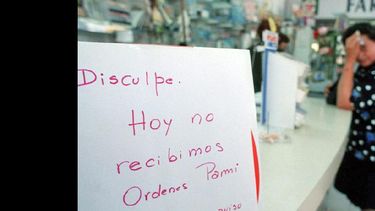 Disculpe.
Hoy no
recibimos
Ordenes Pami
FAR